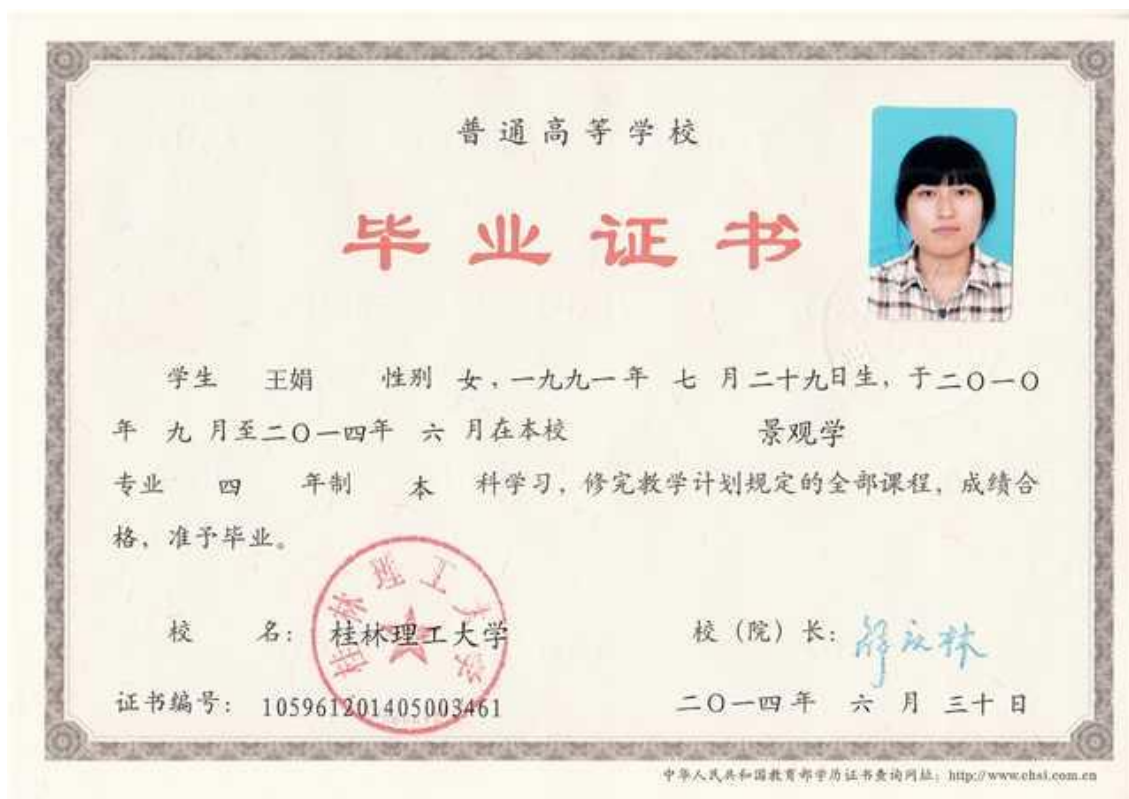 普通高等学校
毕业证书
学生 王娟 性别 女，一九九一年 七 月二十九日生，于二〇一〇
年 九 月至二〇一四年 六 月在本校 景观学
专业 四 年制 本 科学习，修完教学计划规定的全部课程，成绩合
格，准予毕业。
桂林理工大学
校 名：桂林理工大学 校（院）长：
证书编号：105961201405003461 二〇一四年 六 月 三十 日
中华人民共和国教育部学历证书查询网址：http://www.chsi.com.cn